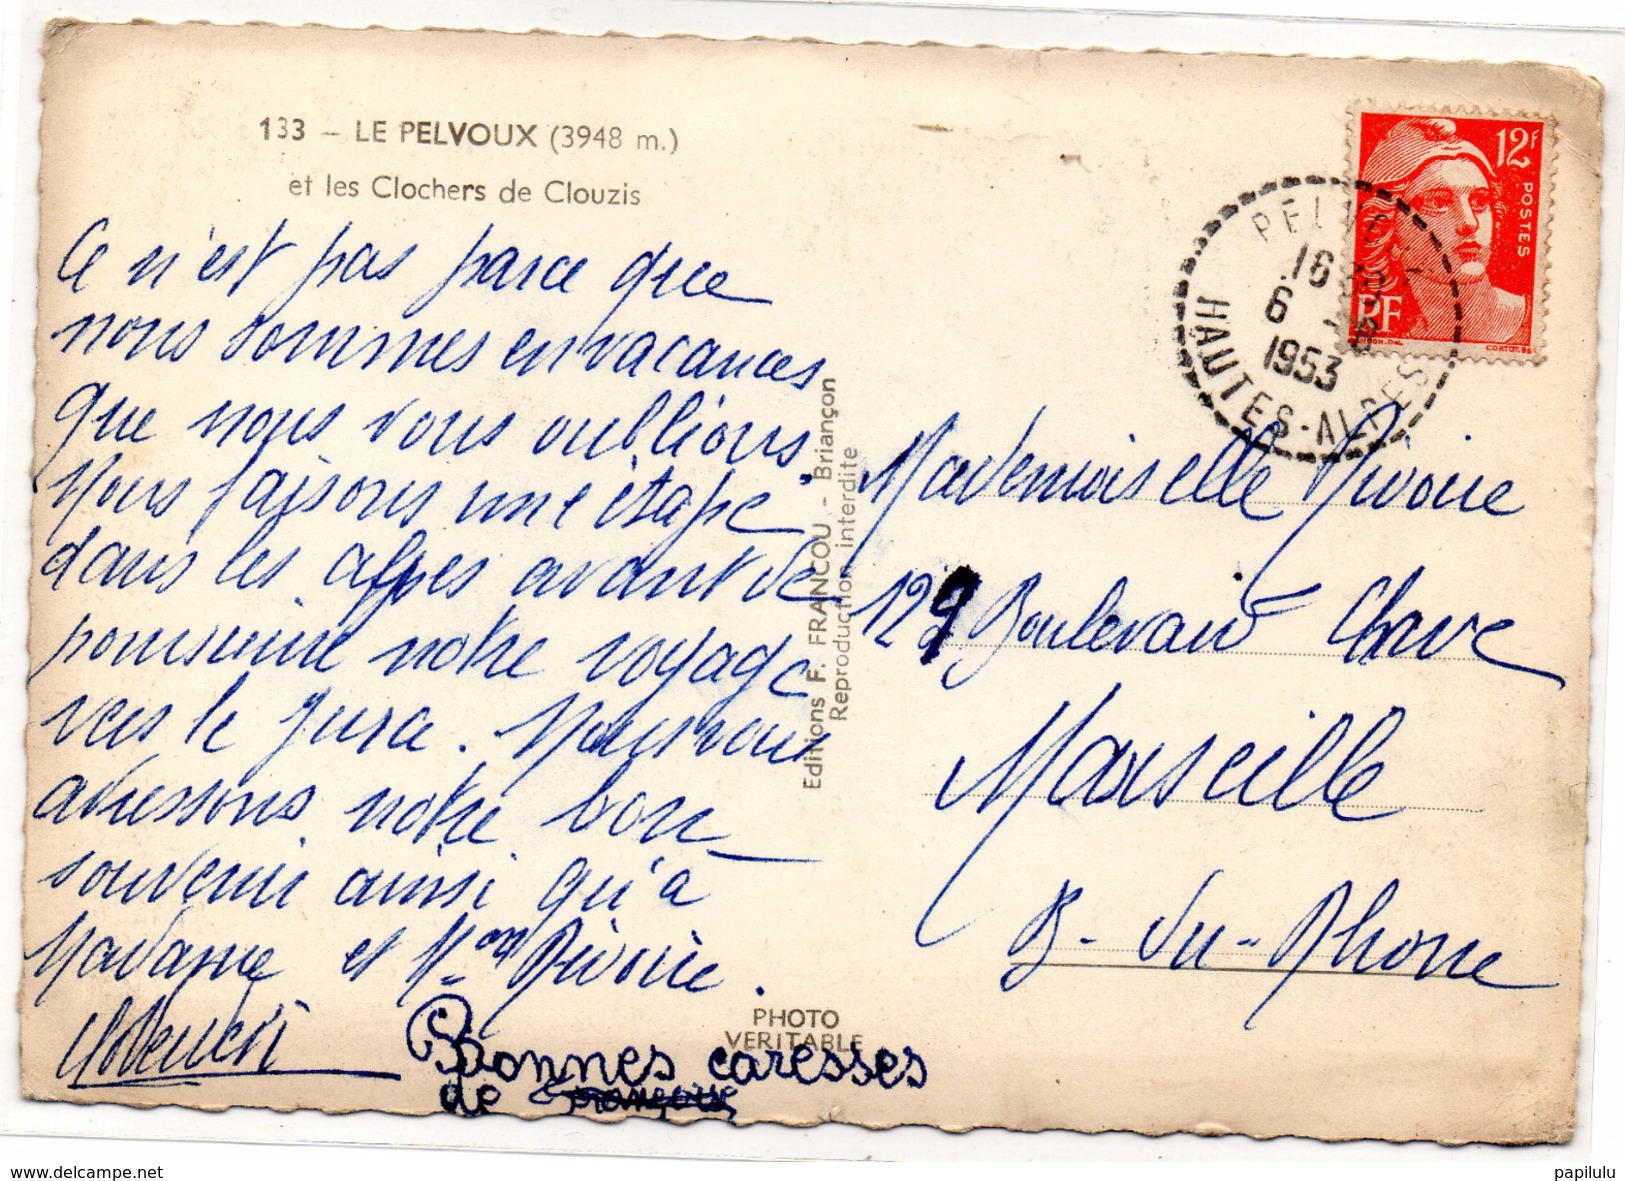 133 – LE PELVOUX (3948 m.)
et les Clochers de Clouzis
Ce n'est pas parce que
nous sommes en vacances
que nous vous oublions.
Nous faisons une étape
dans les alpes avant de
poursuivre notre voyage
vers le Jura. Nous vous
adressons notre bon
souvenir ainsi qu'à
Madame et Mon Rivoire.
Bonnes caresses
de Françoise
Editions F. FRANCOU - Briançon
Reproduction interdite
PHOTO
VERITABLE
12F
POSTES
RF
CORTOT
PELVOUX
16
6 - 8
1953
HAUTES-ALPES
Mademoiselle Rivoire
129 Boulevard Chave
Marseille
B-du-Rhone
www.delcampe.net
papilulu